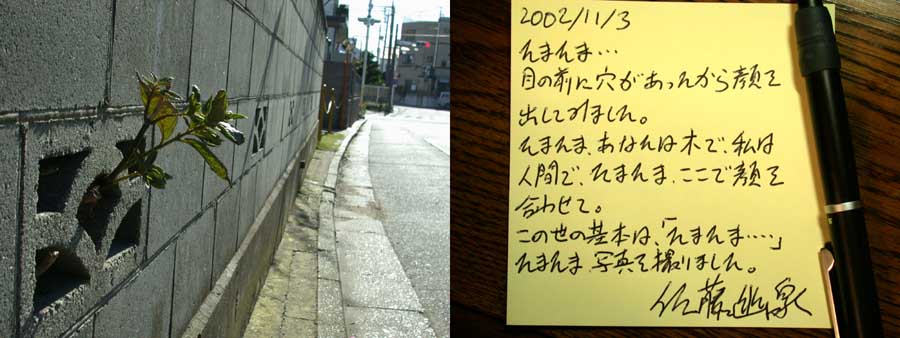 2002/11/3
たまたま…
目の前に穴があったから顔を
出してみました。
たまたま、あなたは木で、私は
人間で、たまたま、ここで顔を
合わせて。
この世の基本は、「たまたま‥‥」
たまたま、写真を撮りました。
佐藤